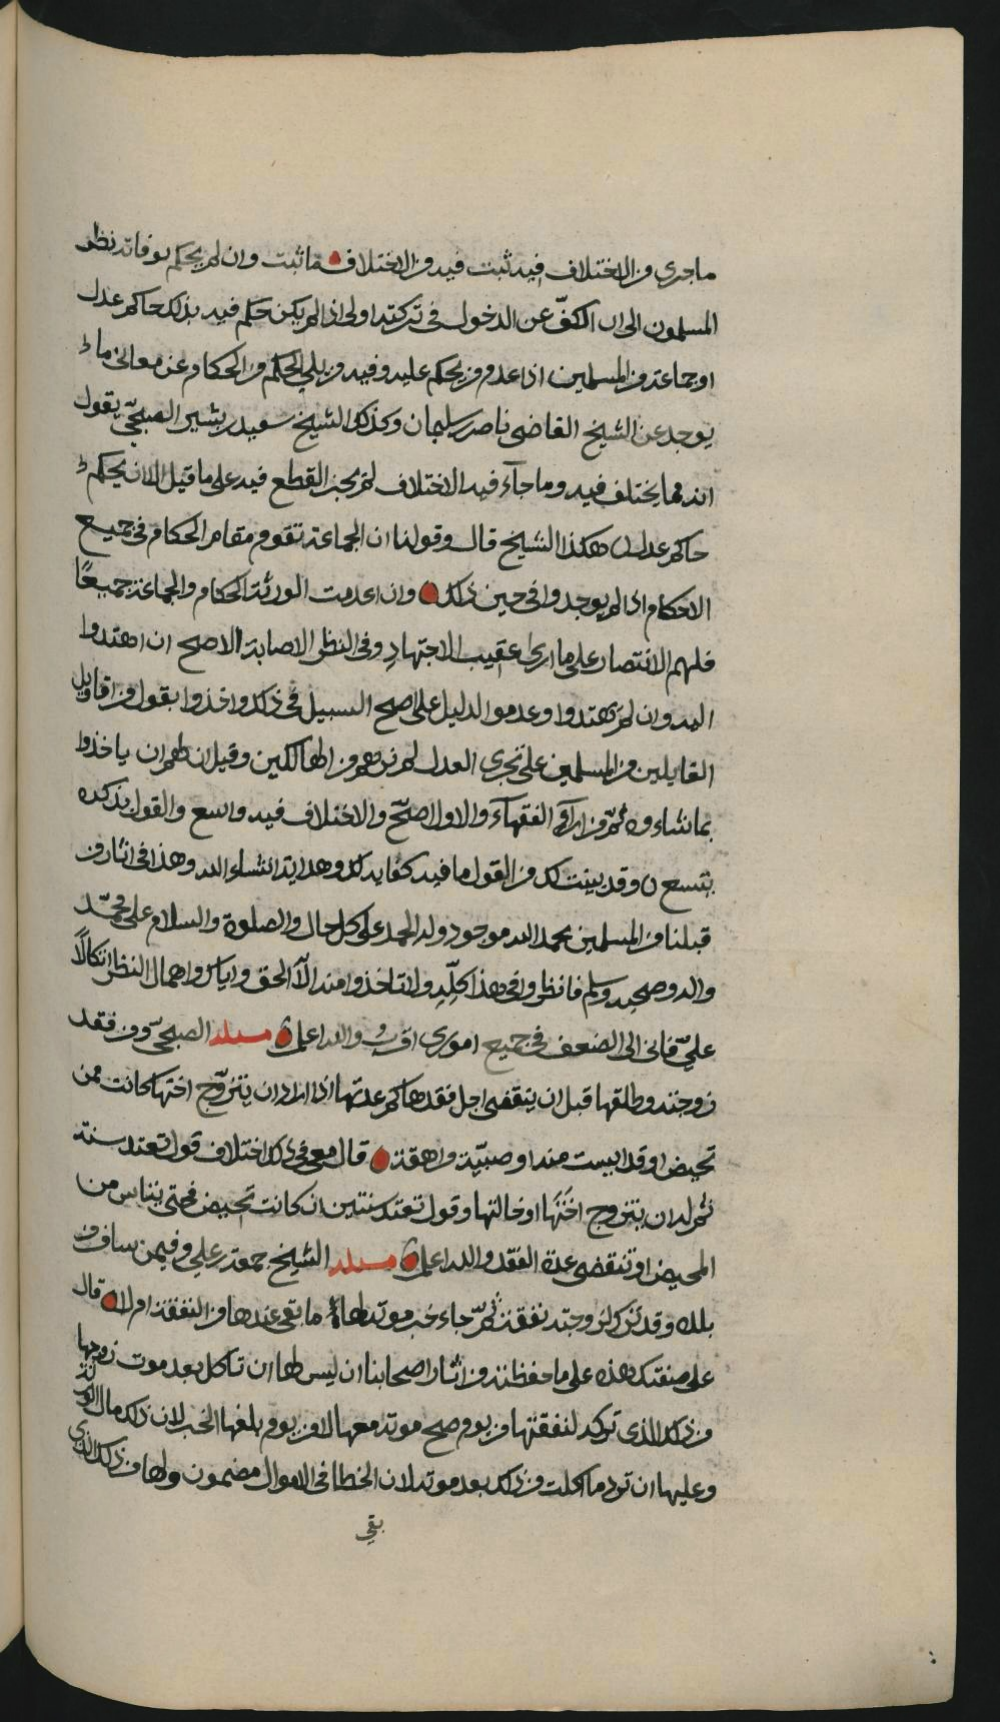 ما جرى من الاختلاف فيه ثبت فيه من الاختلاف ما ثبت وان لم يحكم بوفاته نظر
المسلمون الى ان الكفّ عن الدخول في تركته اولى اذا لم يكن حكم فيه بذلك حاكم عدل
او جماعة من المسلمين اذا عدم من يحكم عليه وفيه من يلي الحكم من الحكام عن معانى ما
يوجد عن الشيخ القاضي ناصر بن سليمان وكذلك الشيخ سعيد بن بشير الصبحّي يقول
انه مما يختلف فيه وما جآء فيه الاختلاف لم يجز القطع فيه على ما قيل الا ان يحكم
حاكم عدل هكذا الشيخ قال وقولنا ان الجماعة تقوم مقام الحكام في جميع
الاحكام اذا لم يوجدوا في حين ذلك وان اعدمت الورثة الحكام والجماعة جميعًا
فلهم الانتصار على ما ارى عقيب الاجتهاد وفي النظر الاصابة الاصح ان اهتدوا
اليه وان لم يهتدوا وعدموا الدليل على اصح السبيل في ذلك واخذوا بقول من اقاويل
القايلين من المسلمين على تحري العدل لم نرهم من الهالكين وقيل ان لهم ان ياخذوا
بما شاءوه ممّ من ارآء الفقهآء والاول اصّح والاختلاف فيه واسع والقول بذكره
يتسع وقد بينت لك من القول ما فيه كفاية لك وهداية ان شاء الله وهذا في اثار من
قبلنا من المسلمين بحمد الله موجود وله الحمد على كل حال والصلوة والسلام على محمّد
واله وصحبه وسلم فانظروا في هذا كلّه ولا تاخذوا منه الّا الحق واياكم واهمال النظر اتكالًا
عليّ فانى الى الضعف في جميع اموري اقرب والله اعلم مسئلة الصبحي ومن فقد
زوجته وطلقها قبل ان ينقضي اجل فقدها كم عدتها اذا اراد ان يتزوّج اختها كانت ممن
تحيض او قد ايست منه او صبيّة مراهقة قال معي في ذلك اختلاف قول تعتد سنة
ثم له ان يتزوج اختها او خالتها وقول تعتد سنتين ان كانت تحيض فحتى يتاس من
المحيض او تنقضي عدة الفقد والله اعلم مسئلة الشيخ جمعة بن علي وفيمن سافر من
بلده وقد ترك لزوجته نفقة ثمّ جاء خبر موته لها ما بقي عندها من النفقة ام لا قال
على صفتك هذه على ما حفظته من اثار اصحابنا ان ليس لها ان تاكل بعد موت زوجها
من ذلك الذى تركه لنفقتها من يوم صح موته معها لا من يوم بلغها الخبر لان ذلك مال الورثة
وعليها ان ترد ما اكلت من ذلك بعد موته لان الخطا في الاموال مضمون ولها من ذلك الذي
بقي